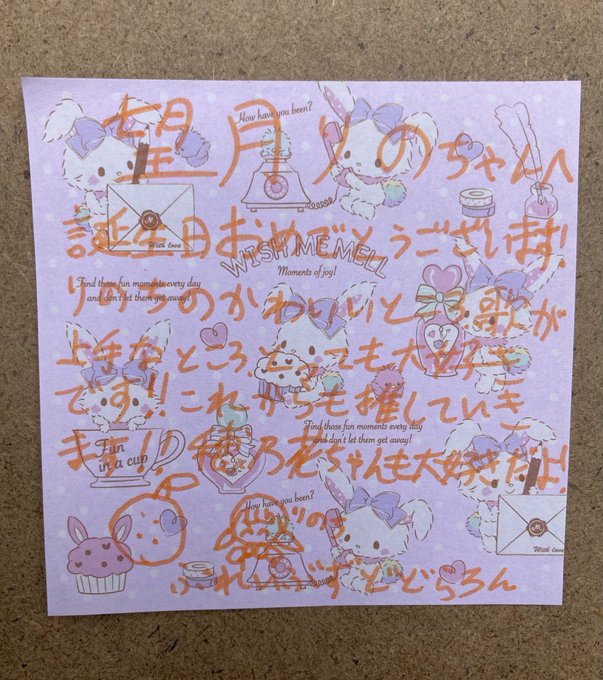 How have you been?
望月りのちゃんへ
With love
誕生日おめでとうございます!
WISH ME MELL
Moments of joy!
Find those fun moments every day
and don't let them get away!
りのちのかわいいところ歌が
上手なところ、とっても大好き
です!!これからも推していき
Find those fun moments every day
and don't let them get away!
Fun
in a cup
ます!! 乃花ちゃんも大好きだよ!
How have you been?
With love